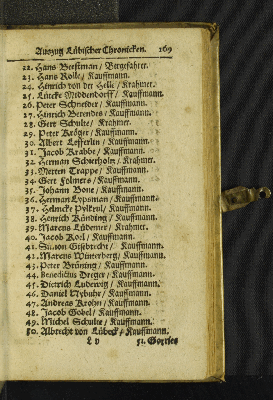 Auszug Lübischer Chronicken. 169
22. Hans Beetman / Bergefahrer.
23. Hans Rolle / Kauffmann.
24. Henrich von der Helle / Krahmer.
25. Lücke Middendorff / Kauffmann.
26. Peter Schneider / Kauffmann.
27. Hinrich Berendes / Kauffmann.
28. Gert Schulte / Krahmer.
29. Peter Kröger / Kauffmann.
30. Albert Lefferlin / Kauffmann.
31. Jacob Krabbe / Kauffmann.
32. Herman Schierholm / Krahmer.
33. Merten Trappe / Kauffmann.
34. Gert Folmers / Kauffmann.
35. Johann Bone / Kauffmann.
36. Herman Lypsman / Kauffmann.
37. Helmcke Pylkrul / Kauffmann.
38. Henrich Künding / Kauffmann.
39. Marcus Lüdemer / Krahmer.
40. Jacob Korl / Kauffmann.
41. Simon Gisbrecht / Kauffmann.
41. Marcus Winterberg / Kauffmann.
43. Peter Brüning / Kauffmann.
44. Benedictus Dreger / Kauffmann.
45. Dietrich Ludewig / Kauffmann.
46. Daniel Nybuhr / Kauffmann.
47. Andreas Krohn / Kauffmann.
48. Jacob Gobel / Kauffmann.
49. Michel Schulte / Kauffmann.
50. Albrecht von Lübeck / Kauffmann.
L v 51. Gorries